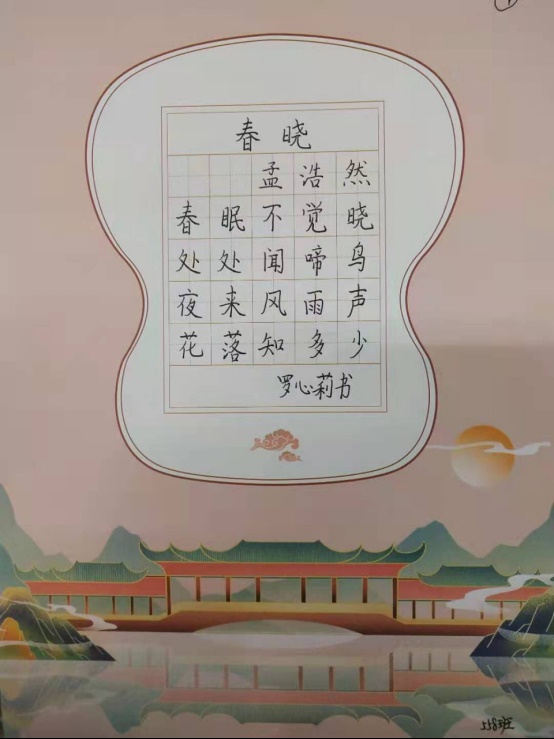 春晓
孟浩然
春眠不觉晓
处处闻啼鸟
夜来风雨声
花落知多少
罗心莉书
558班